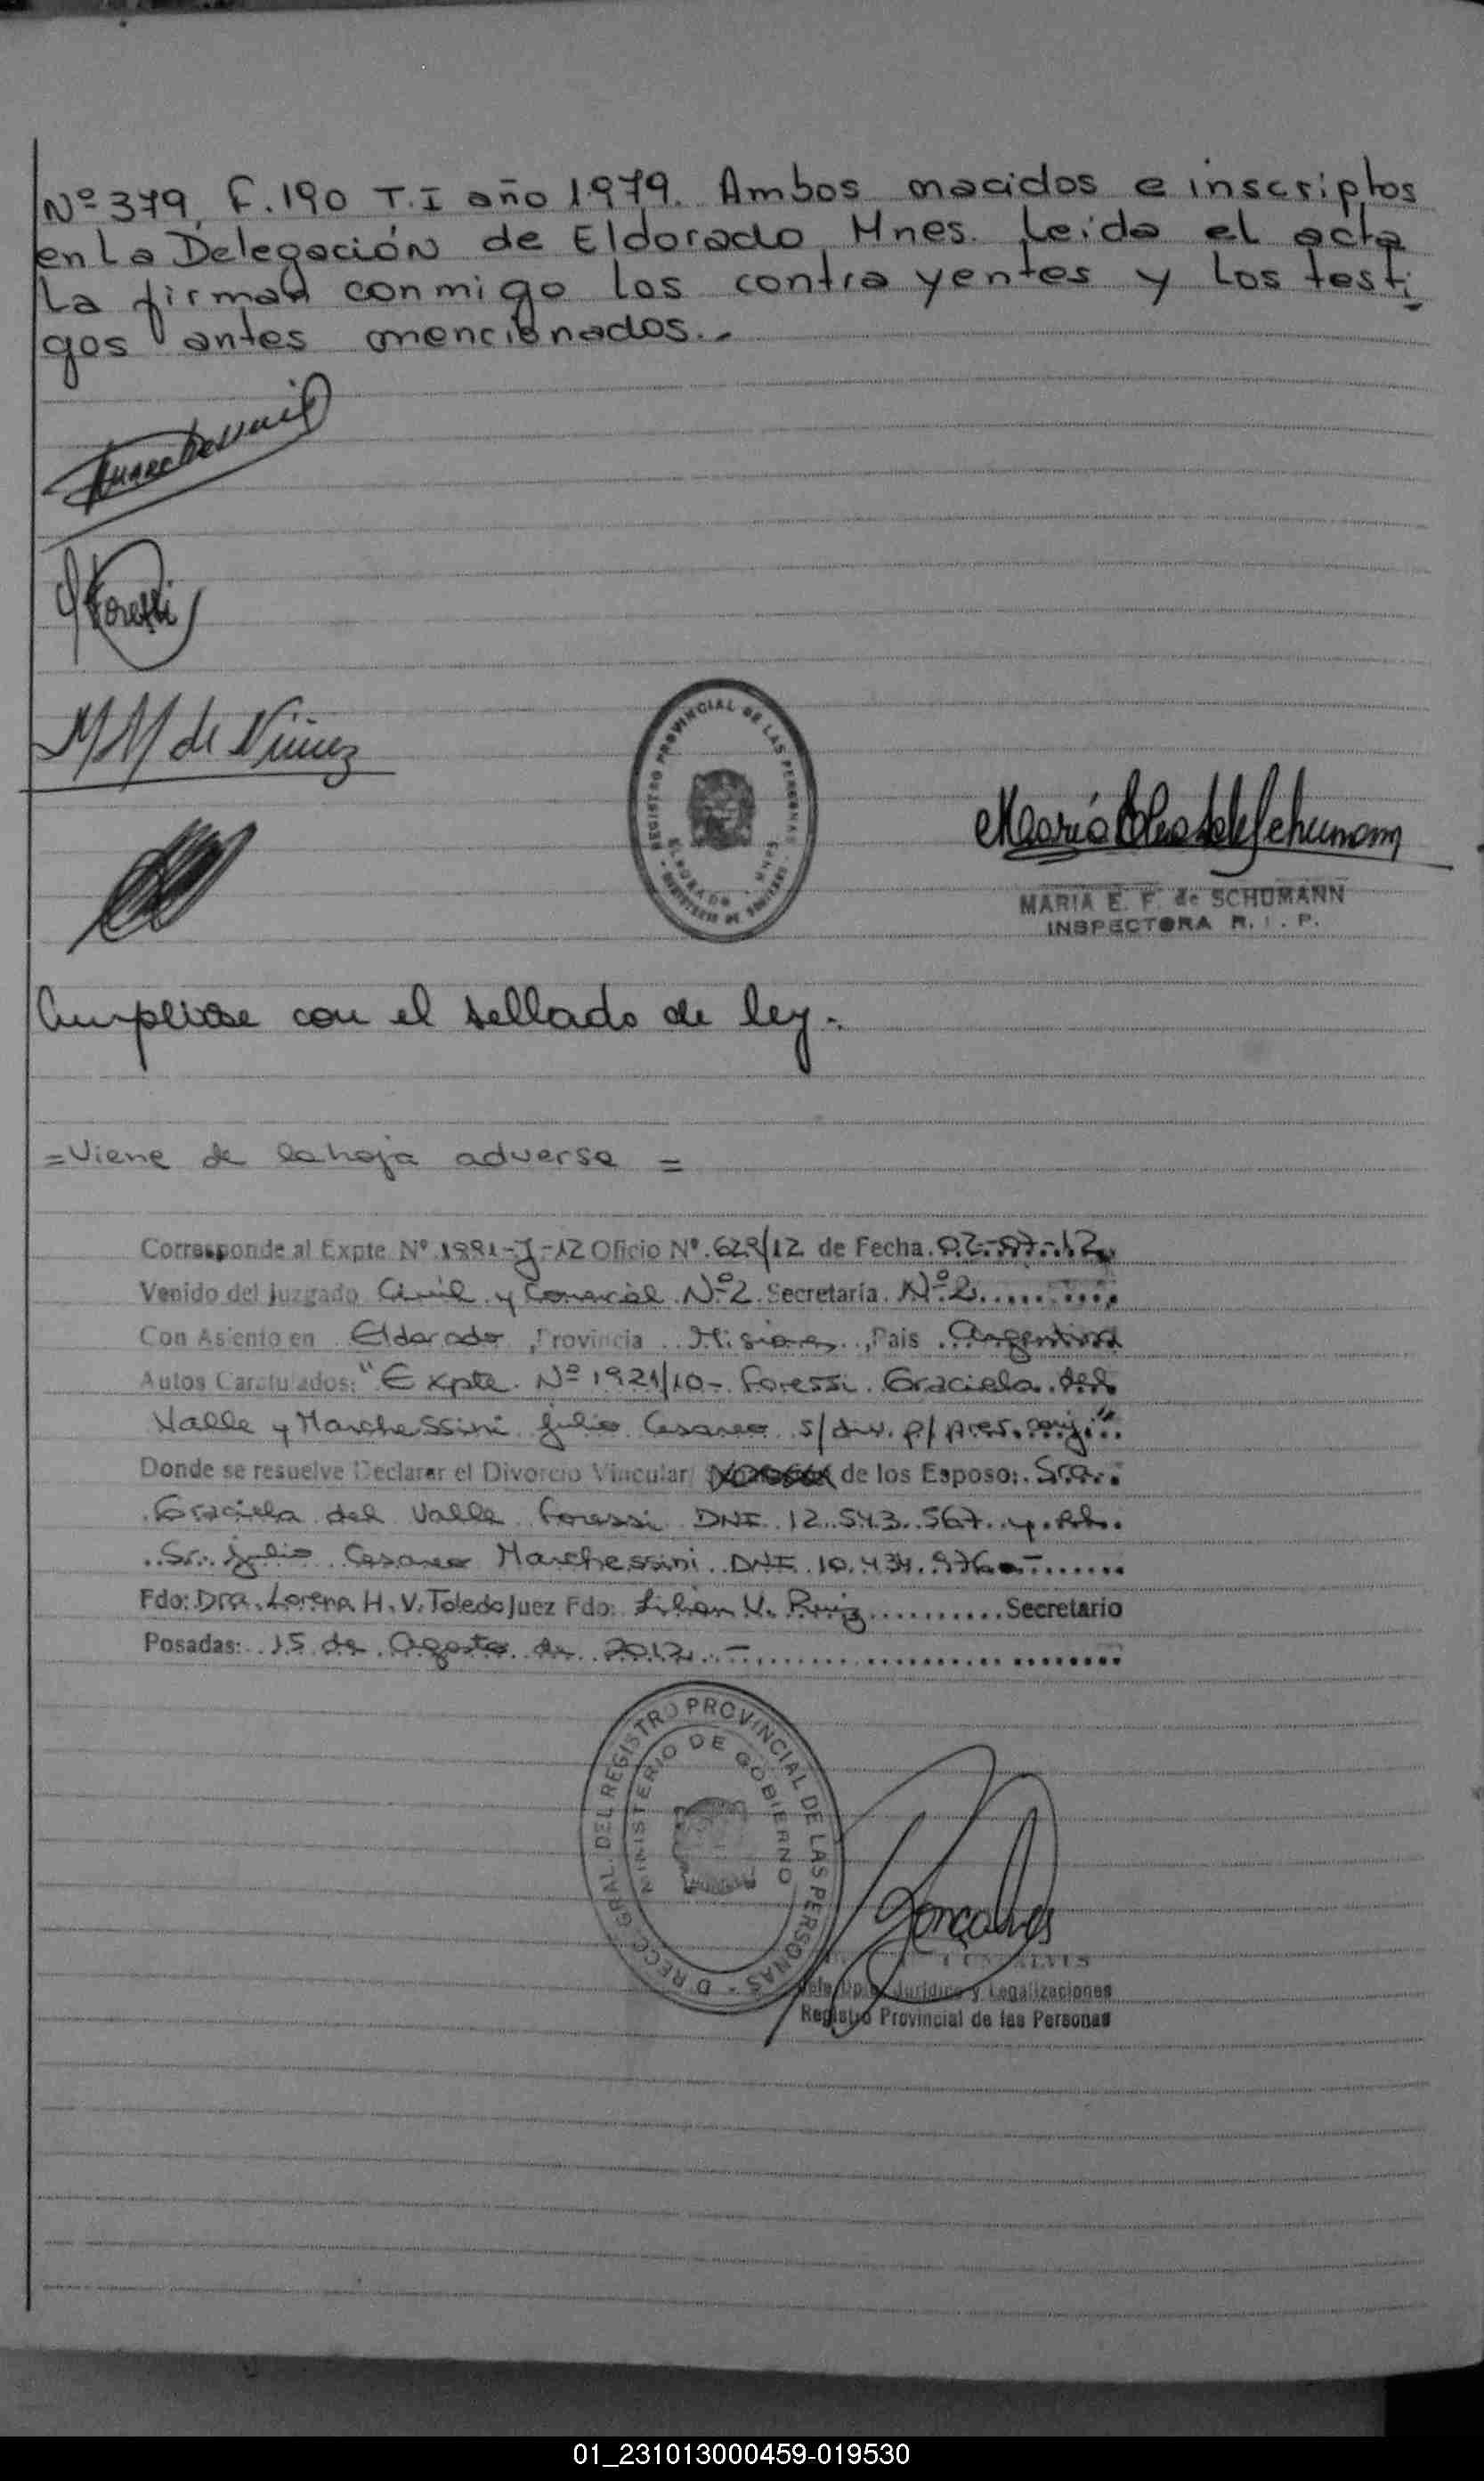 Nº 379, F. 190 T. I año 1979. Ambos nacidos e inscriptos
en La Delegación de Eldorado, Mnes. Leida el acta
La firman conmigo los contrayentes y los testi
gos antes mencionados.-
GForessi
MM de Núñez
REGISTRO PROVINCIAL DE LAS PERSONAS
ELDORADO - MNES
MARIA E. F. de SCHUMANN
INSPECTORA R. I. P.
Cumpliose con el sellado de ley.-
= Viene de la hoja adversa =
Corresponde al Expte. Nº 1991-J-12 Oficio Nº 629/12 de Fecha 02-07-12
Venido del juzgado Civil y Comercial Nº 2 Secretaría Nº 2
Con Asiento en Eldorado, Provincia Misiones, País Argentina
Autos Caratulados: "Expte. Nº 1921/10- Foressi Graciela del
Valle y Marchessini Julio Cesareo s/div. p/ pres. conj."
Donde se resuelve Declarar el Divorcio Vincular de los Esposo: Sra.
Graciela del Valle Foressi DNI 12.543.567 y el
Sr. Julio Cesareo Marchessini DNI 10.434.976.-
Fdo: Dra. Lorena H. V. Toledo Juez Fdo: Lilian V. Ruiz Secretario
Posadas: 15 de Agosto de 2012.-
DIRECC. GRAL. DEL REGISTRO PROVINCIAL DE LAS PERSONAS
MINISTERIO DE GOBIERNO
Gonçalves
Jefe Dpto. Jurídico y Legalizaciones
Registro Provincial de las Personas
01_231013000459-019530